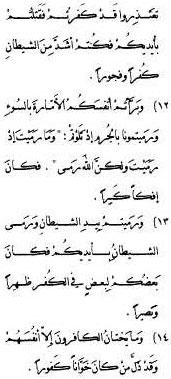 تعتذروا قد كفرتم فقتلتم
بأيديكم فكنتم أشد من الشيطان
كفراً وفجوراً.
(١٢) وبرأتم أنفسكم الأمارة بالسوء
ورميتمونا بالجرم إذ قلتم: "وما رميت إذ
رميت ولكن الله رمى". فكان
إفكاً كبيراً.
(١٣) ورميتم بيد الشيطان ورمى
الشيطان بأيديكم فكان
بعضكم لبعض في الكفر ظهيراً
ونصيراً.
(١٤) وما يختان الكافرون إلا أنفسهم
وقد ذل من كان خواناً كفوراً.